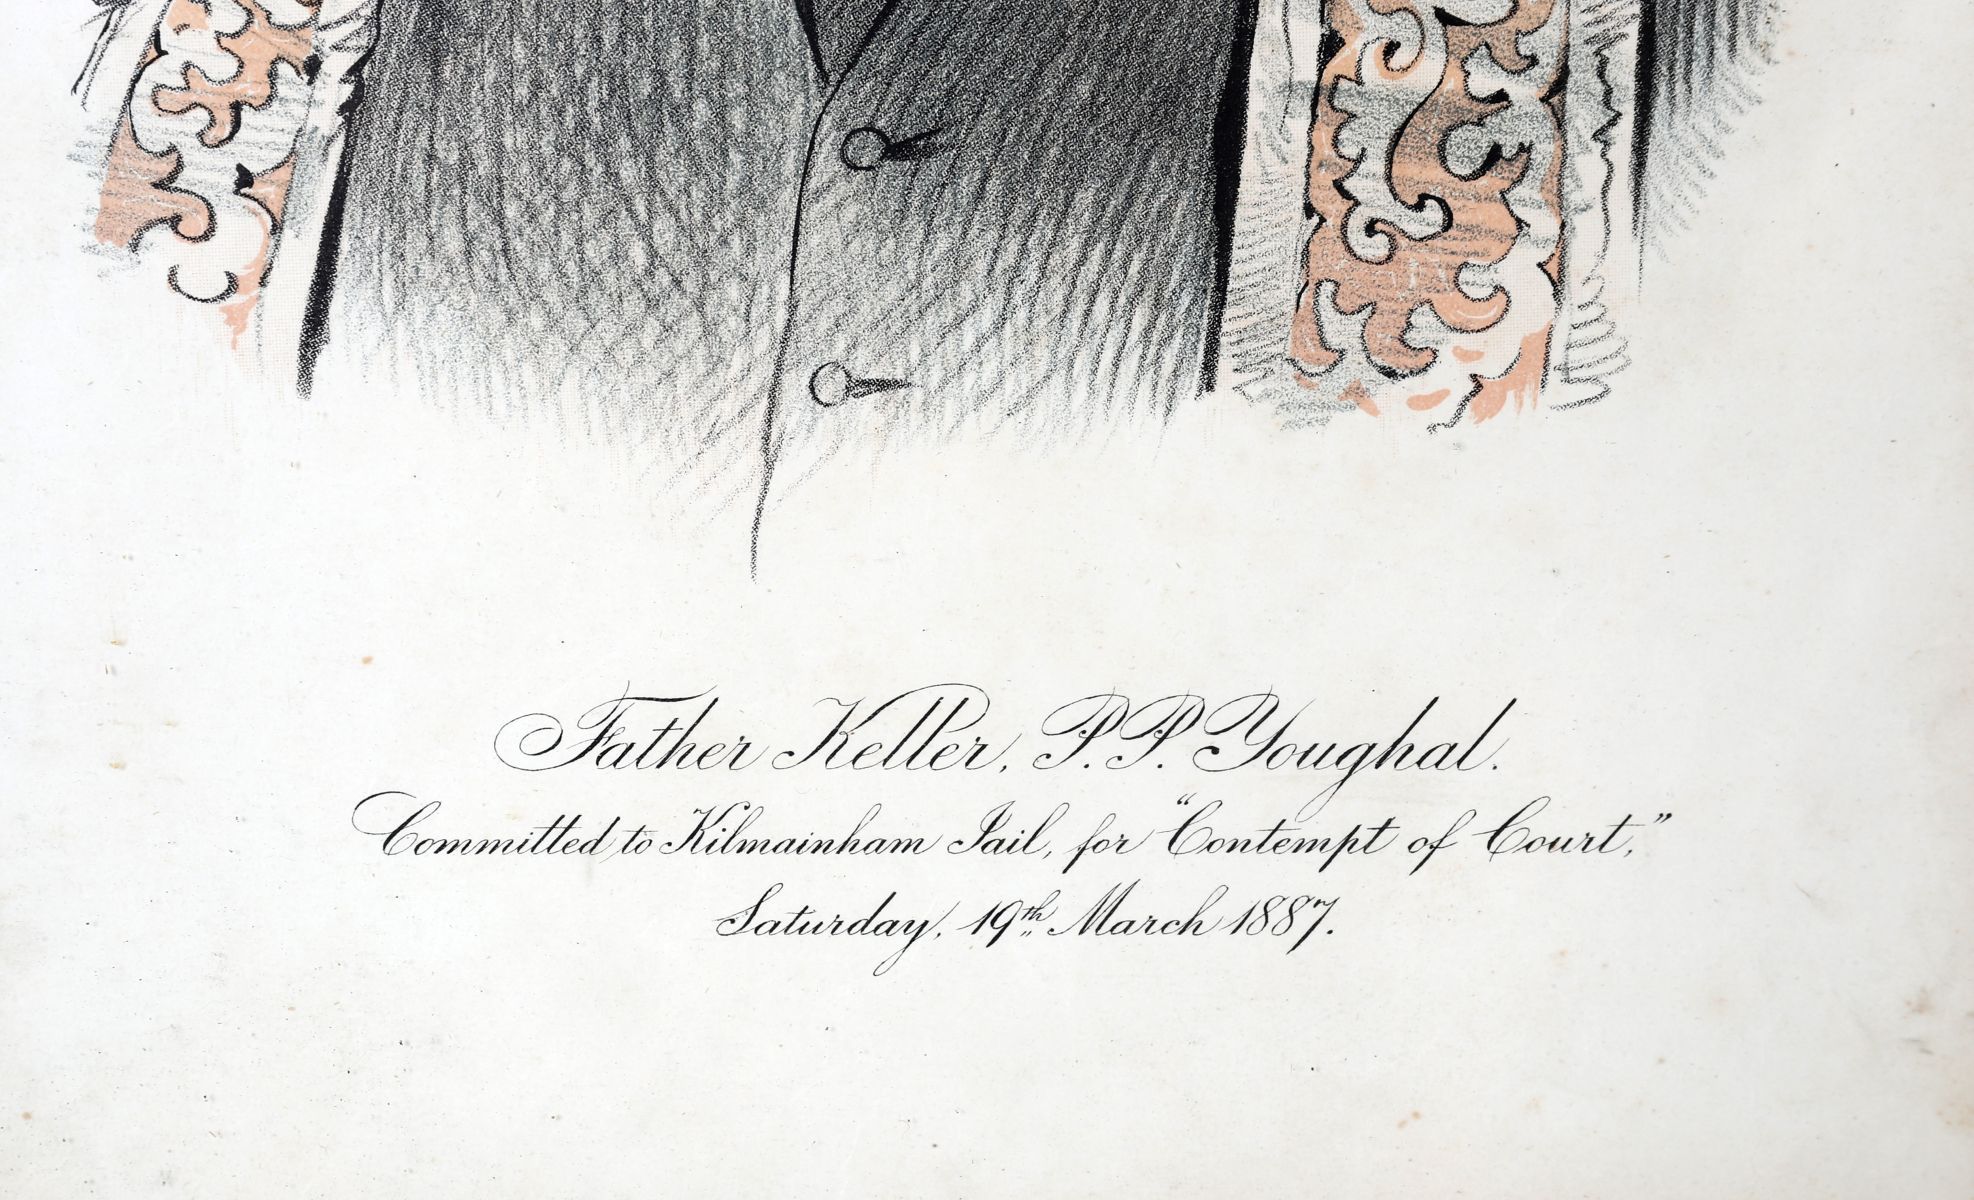 Father Keller, P.P. Youghal.
Committed to Kilmainham Jail, for "Contempt of Court,"
Saturday, 19th March 1887.